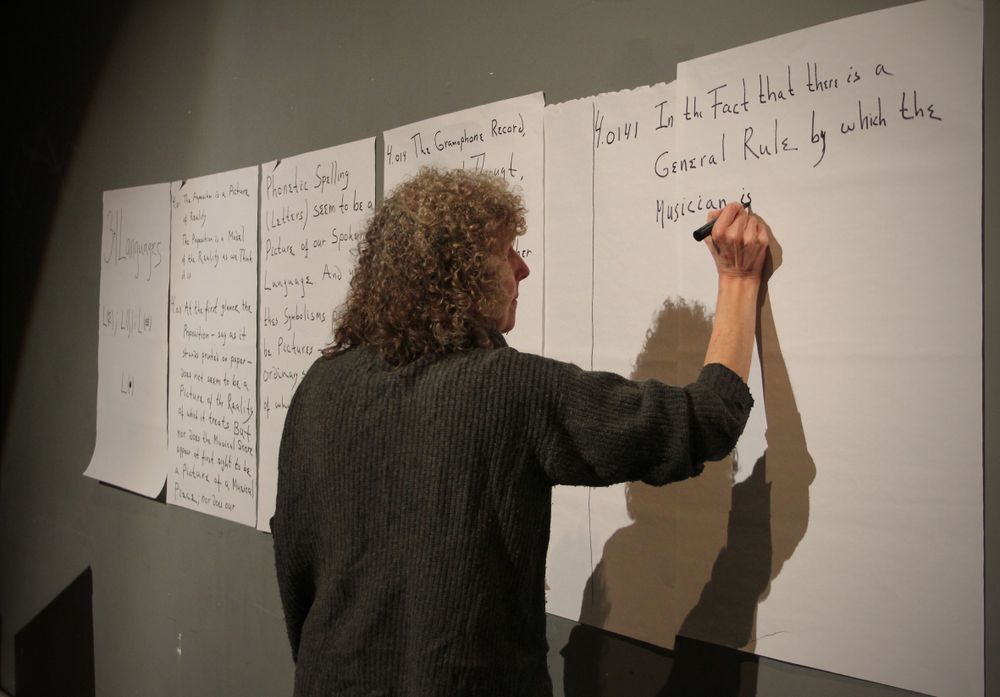 3 Languages
4.01 The Proposition is a Picture
of Reality
The Proposition is a Model
of the Reality as we Think
it is
4.011 At the first glance the
Proposition – say as it
stands printed on paper –
does not seem to be a
Picture of the Reality
of which it treats. But
nor does the Musical Score
appear at first sight to be
a Picture of a Musical
Piece; nor does our
Phonetic Spelling
(Letters) seem to be a
Picture of our Spoken
Language. And
thes Symbolisms
be Pictures
ordinary
of
4.014 The Gramophone Record,
Thought,
4.0141 In the Fact that there is a
General Rule by which the
Musician is